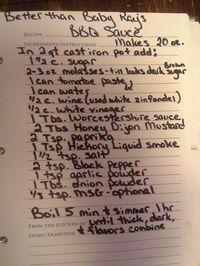 Better than Baby Rays
RECIPE BBQ Sauce
INGREDIENTS/INSTRUCTIONS Makes 20 oz.
In 2 qt cast iron pot add:
1 1/2 c. sugar Brown
2-3 oz molasses-till looks dark sugar
1 can tomatoe paste
1 can water
1/2 c. wine (used white zinfandel)
1/2 c. white vinegar
1 Tbs. Worcestershire sauce
2 Tbs Honey Dijon Mustard
2 Tsp. paprika
1 Tsp Hickory Liquid smoke
1 1/2 tsp. salt
2 tsp. Black Pepper
1 tsp garlic powder
1 Tbs. onion powder
1/8 tsp. MSG-optional
Boil 5 min & simmer 1 hr
FROM THE KITCHEN OF until thick, dark,
STORY/TRADITION & flavors combine